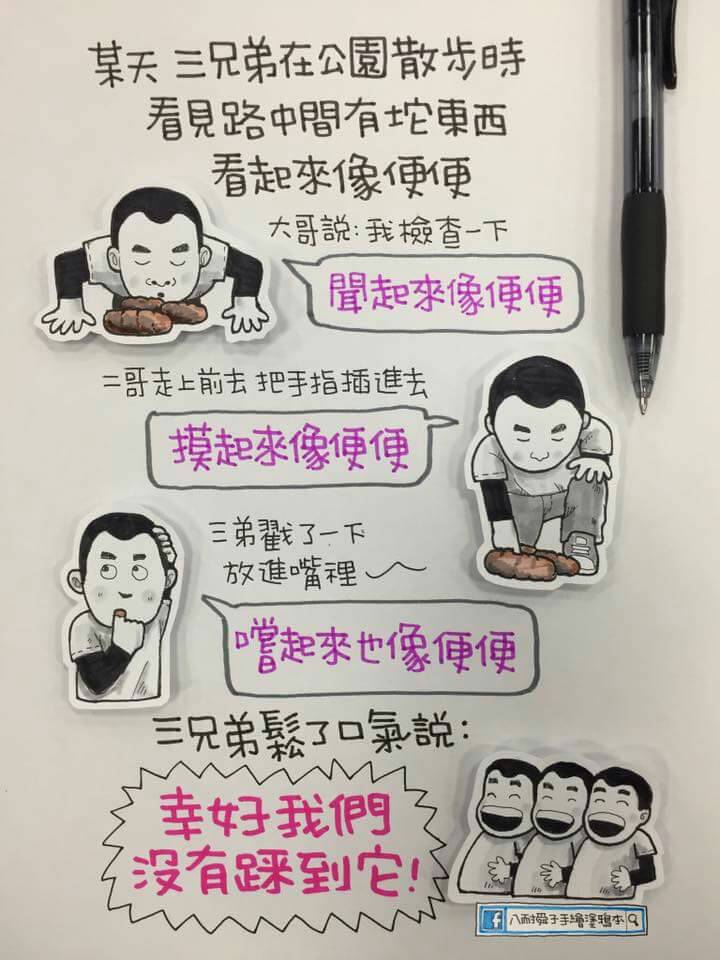 某天 三兄弟在公園散步時
看見路中間有坨東西
看起來像便便
大哥說:我檢查一下
聞起來像便便
二哥走上前去 把手指插進去
摸起來像便便
三弟戳了一下
放進嘴裡~
嚐起來也像便便
三兄弟鬆了口氣說:
幸好我們
沒有踩到它!
f 八耐舜子手繪塗鴉本